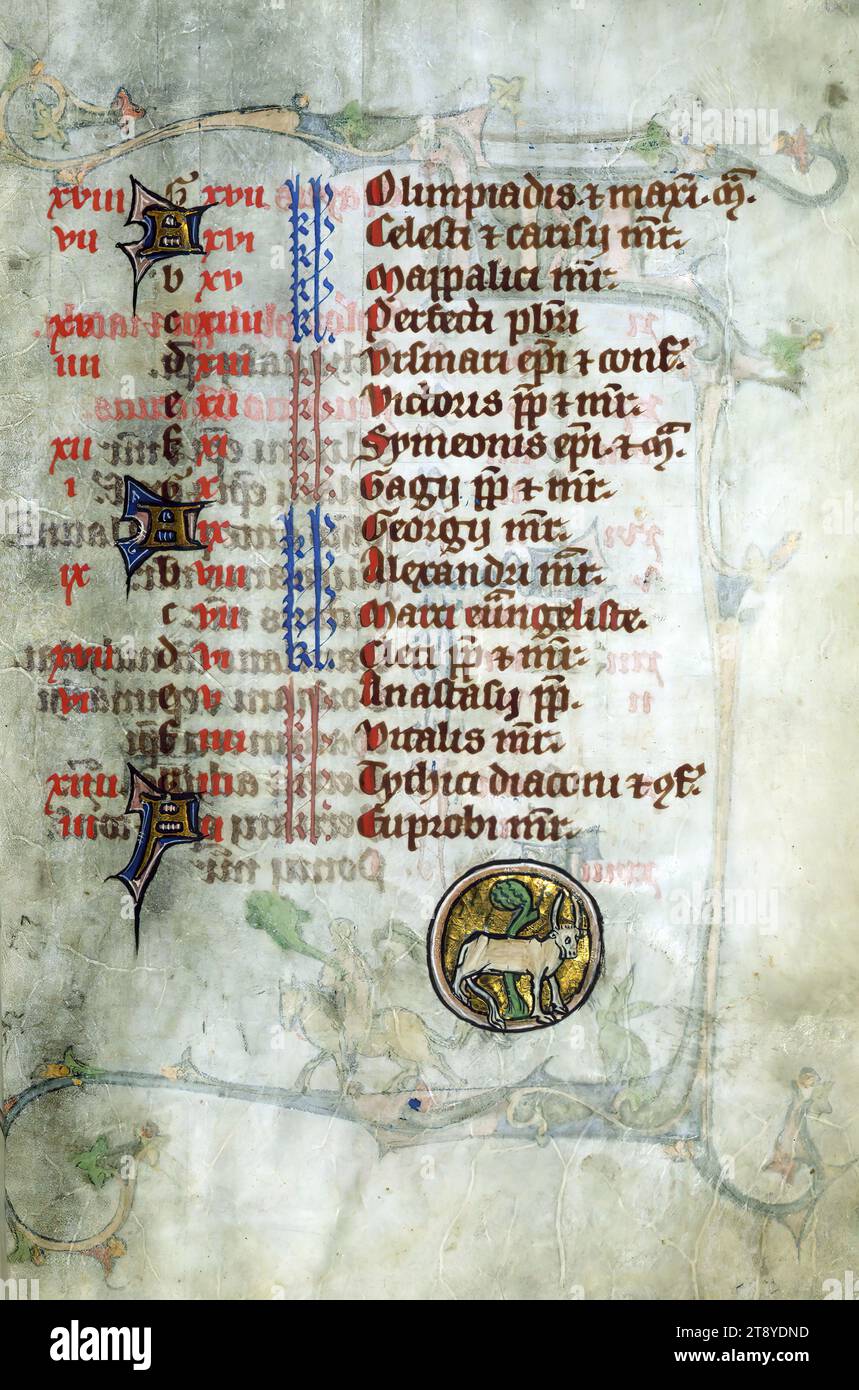 xviii G xvii kl. Olimpiadis ⁊ maxī. m̄.
vii A xvi kl. Celesti ⁊ carisij mr̄.
b xv kl. Mappalici mr̄.
xv c xiiii kl. Perfecti pbr̄i
iiii d xiii kl. Vrsmari ep̄i ⁊ conf.
e xii kl. Victoris pp̄ ⁊ mr̄.
xii f xi kl. Symeonis ep̄i. ⁊ m̄.
i G x kl. Gagij pp̄ ⁊ mr̄.
A ix kl. Georgij mr̄.
ix b viii kl. Alexandri mr̄.
c vii kl. Marci eūngeliste.
xvii d vi kl. Cleti pp̄ ⁊ mr̄.
vi e v kl. Anastasij pp̄.
f iiii kl. Vitalis mr̄.
xiiii G iii kl. Tychici diaconi ⁊ ꝯf.
iii A ii kl. Euprobi mr̄.
alamy
Image ID: 2T8YDND
www.alamy.com